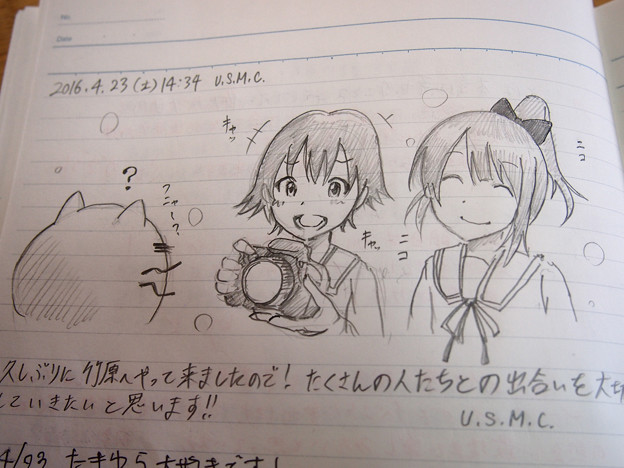 No.
Date
2016.4.23(土)14:34 U.S.M.C.
キャッ
ニコ
?
フニャ〜?
キャッ
ニコ
久しぶりに竹原へやって来ましたので！たくさんの人たちとの出合いを大切
していきたいと思います!!
U.S.M.C.
4/23 たまゆら大好きです!